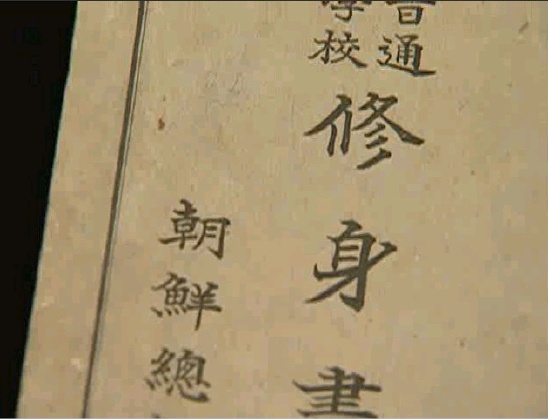 普通
學校
修身書
朝鮮總